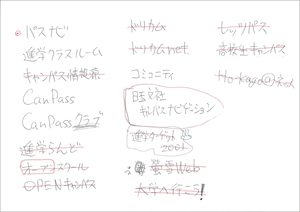 パスナビ
進学クラスルーム
キャンパス情報
CanPass
CanPassクラブ
進学らんど
オープンスクール
OPENキャンパス
ドリカム
ドリカムnet
コミュニティ
旺文社
キャンパスナビゲーション
2001
蛍雪Web
大学へ行こう!
レッツパス
高校生キャンパス